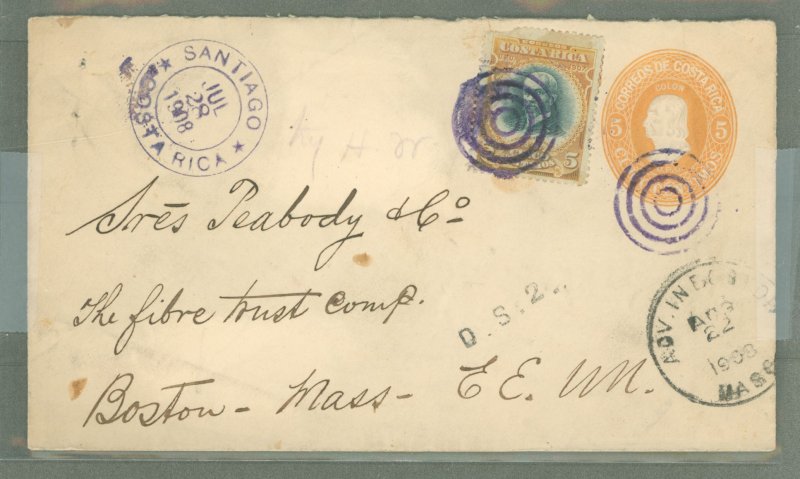 SANTIAGO
JUL
28
1908
COSTA RICA
COSTA RICA
5
CORREOS DE COSTA RICA
COLON
5
5
Srēs Peabody & Co
The fibre trust Comp.
Boston - Mass - E E. UU.
D.S.2
ADV. IN BOSTON
22
1908
MASS